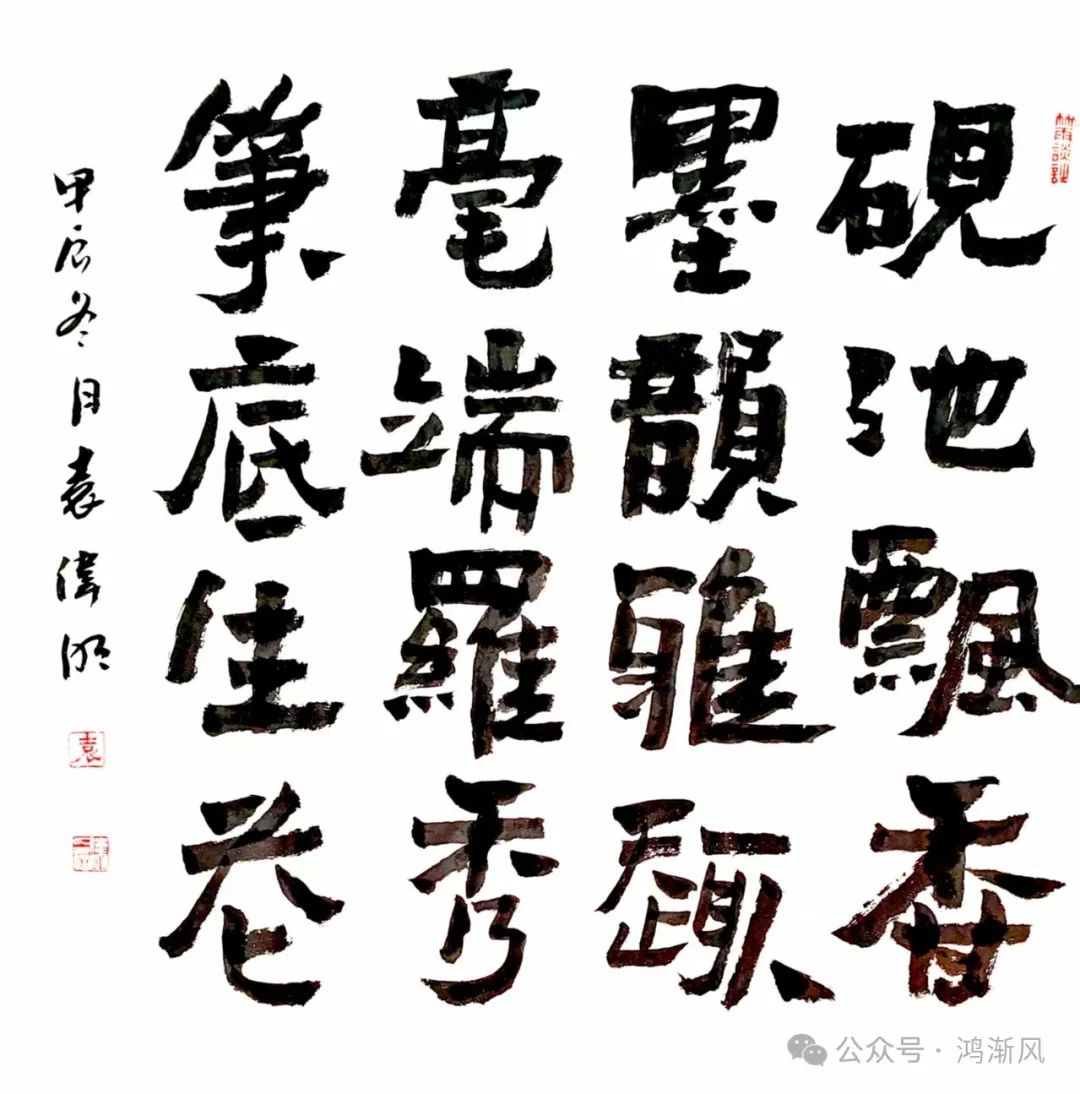 硯池飄香
墨韻雅
毫端羅秀
筆底佳卷
甲辰冬月袁偉
袁
公众号·鸿渐风